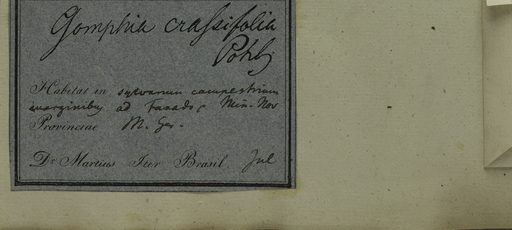 Gomphia crassifolia
Pohl
Habitat in sylvarum campestrium
marginibus ad Tanado, Min. Nov
Provinciae M. Ger.
Dr Martius Iter Brasil Jul